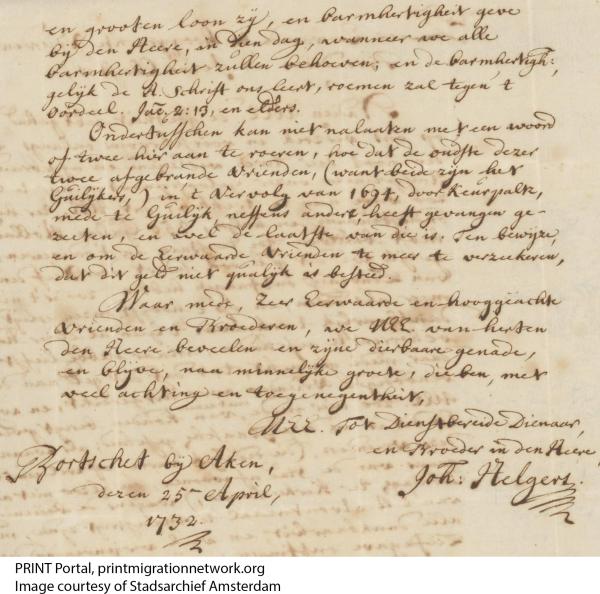 en grooten loon zÿ, en barmhertigheit geve
bÿ den Heere, in dien dag, wanneer we alle
barmhertigheit zullen behoeven; en de barmhertigh:,
gelijk de H. Schrift ons leert, roemen zal tegen 't
oordeel. Jac. 2:13, en elders.
Ondertusschen kan niet nalaaten met een woord
of twee hier aan te roeren, hoe dat de oudste dezer
twee afgebrande Vrienden, (want beide zÿn het
Guilikers,) in 't Vervolg van 1694, door Keurpaltz,
mede te Guilijk, neffens andere, heeft gevangen ge-
zeeten, en wel de laatste van die is. Ten bewÿze,
en om de Eerwaarde Vrienden te meer te verzeekeren,
dat dit geld niet qualijk is besteed.
Waar mede, zeer Eerwaarde en hooggeachte
Vrienden en Broederen, we UEE. van herten
den Heere beveelen en zijne dierbaare genade,
en blijve, naa minnelijke groete, die ben, met
veel achting en toegenegentheit,
UEE. Tot Dienstbereide Dienaar,
en Broeder in den Heere
Joh: Helgers.
Bortschet bij Aken,
dezen 25en April,
1732.
PRINT Portal, printmigrationnetwork.org
Image courtesy of Stadsarchief Amsterdam